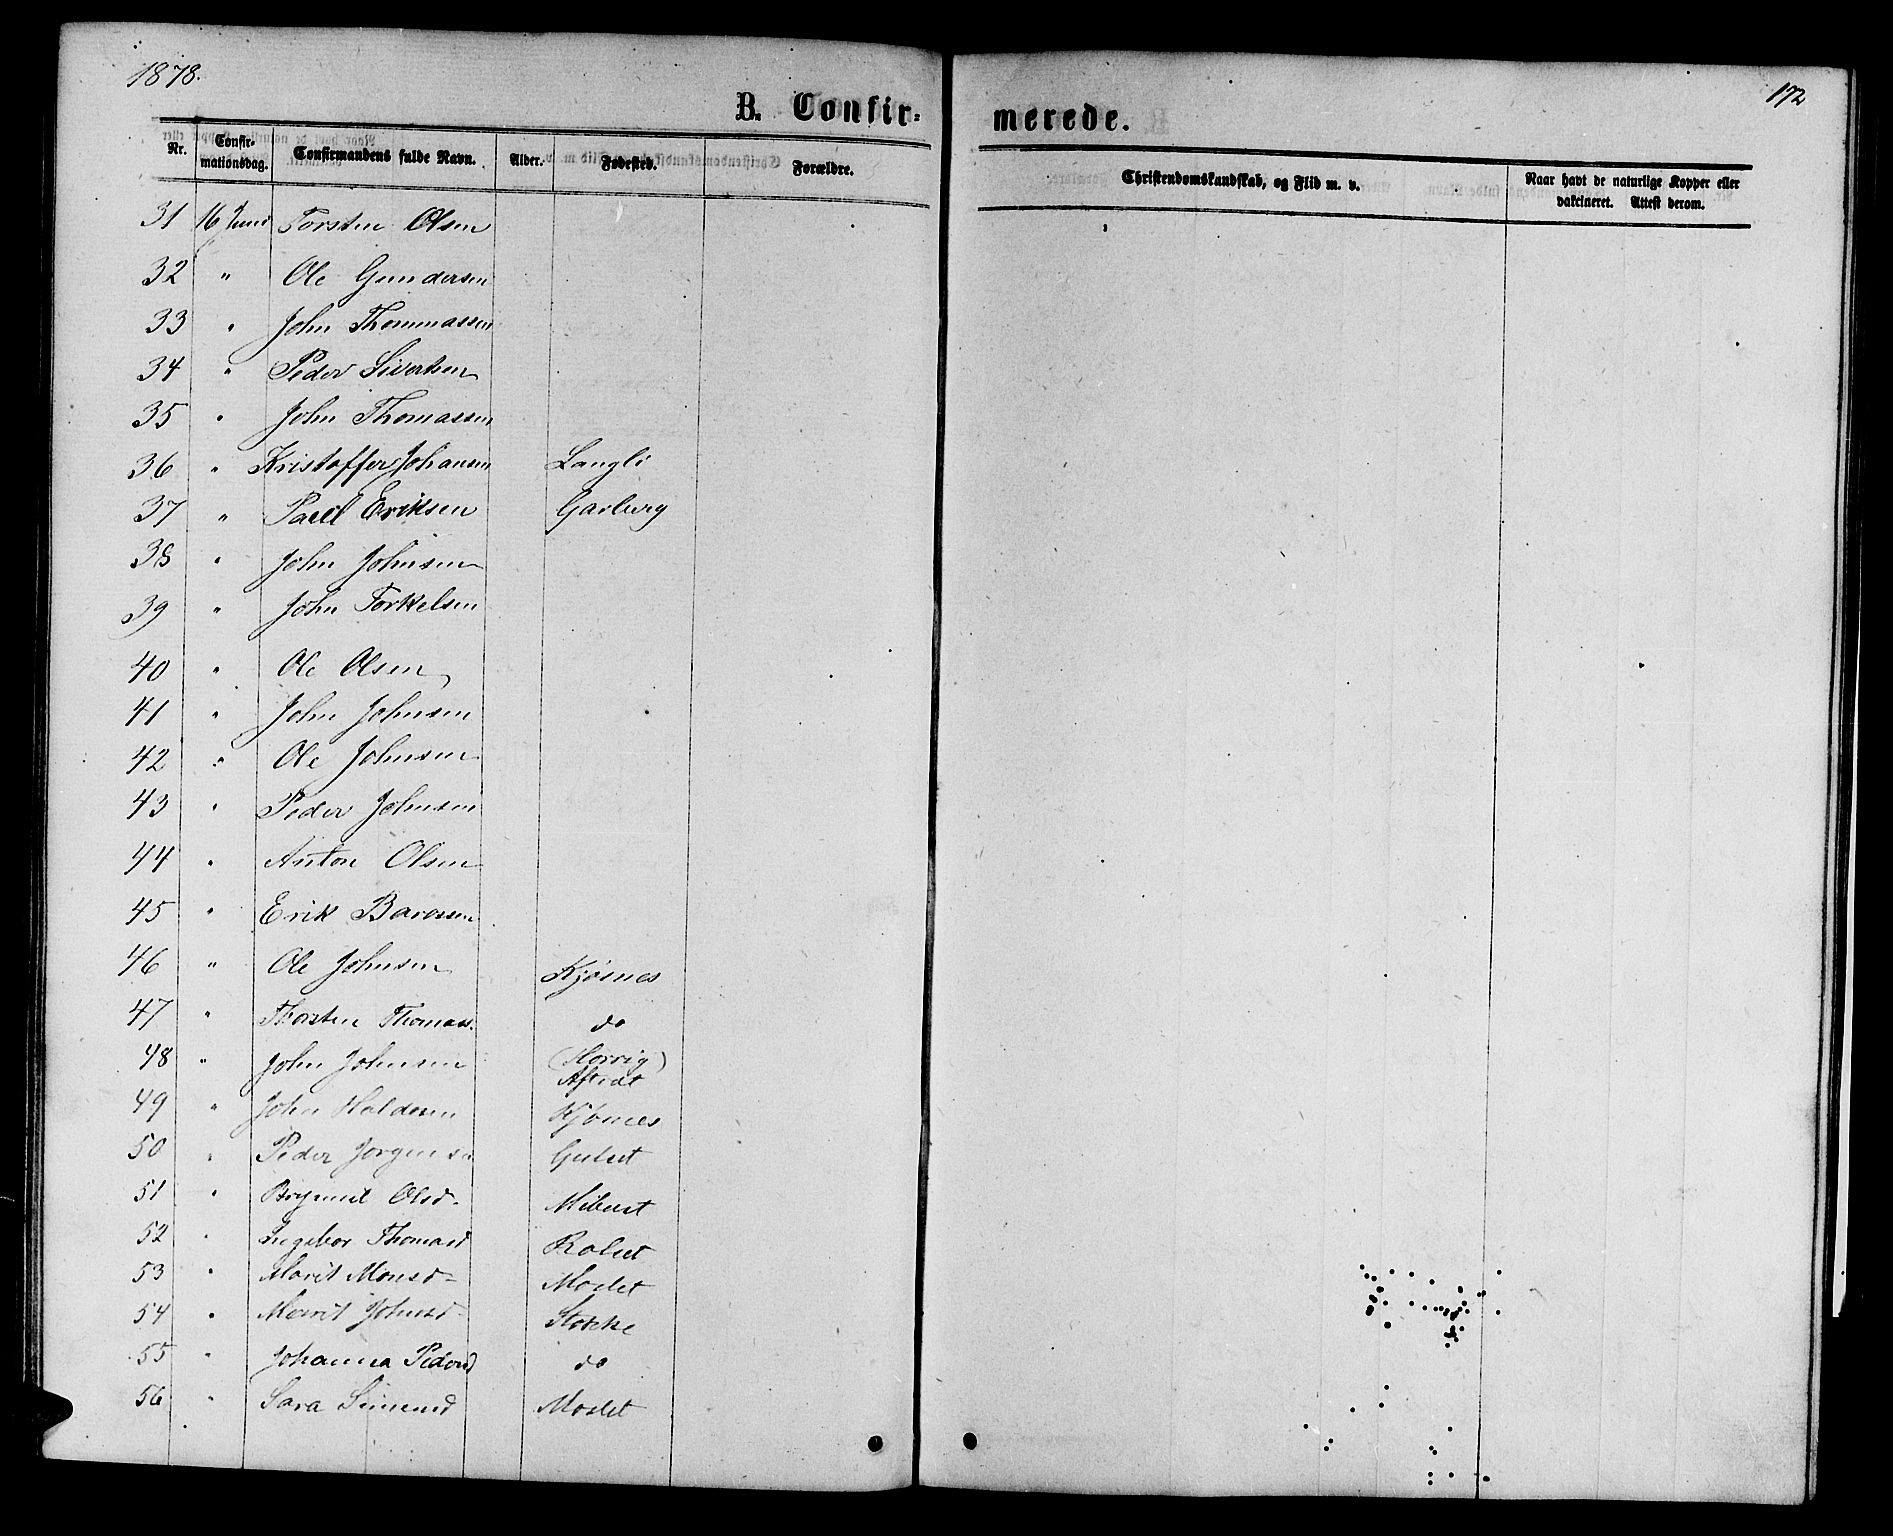 1878.
172
B. Confirmerede.
Nr. Confirmationsdag. Confirmandens fulde Navn. Alder. Fødested. Forældre. Christendomskundskab, og Flid m. v. Naar havt de naturlige Kopper eller vakcineret. Attest derom.
31 16 Juni Torsten Olsen
32 " Ole Gundersen
33 " John Thommassen
34 " Peder Sivertsen
35 " John Thomassen
36 " Kristoffer Johansen Langli
37 " Paul Eriksen Garberg
38 " John Johnsen
39 " John Torkelsen
40 " Ole Olsen
41 " John Johnsen
42 " Ole Johnsen
43 " Peder Johnsen
44 " Anton Olsen
45 " Erik Baressen
46 " Ole Johnsen Kjøsnes
47 " Thorsten Thomass. do
48 " John Johnsen (Horvig) Aftret
49 " John Haldosen Kjösnes
50 " Peder Jørgensen
51 " Olsd. Mebust
52 " Ingebor Thomasd Rolset
53 " Marit Monsd Moslet
54 " Marrit Johnsd Stokke
55 " Johanna Pedersd do
56 " Sara Simensd Moslet